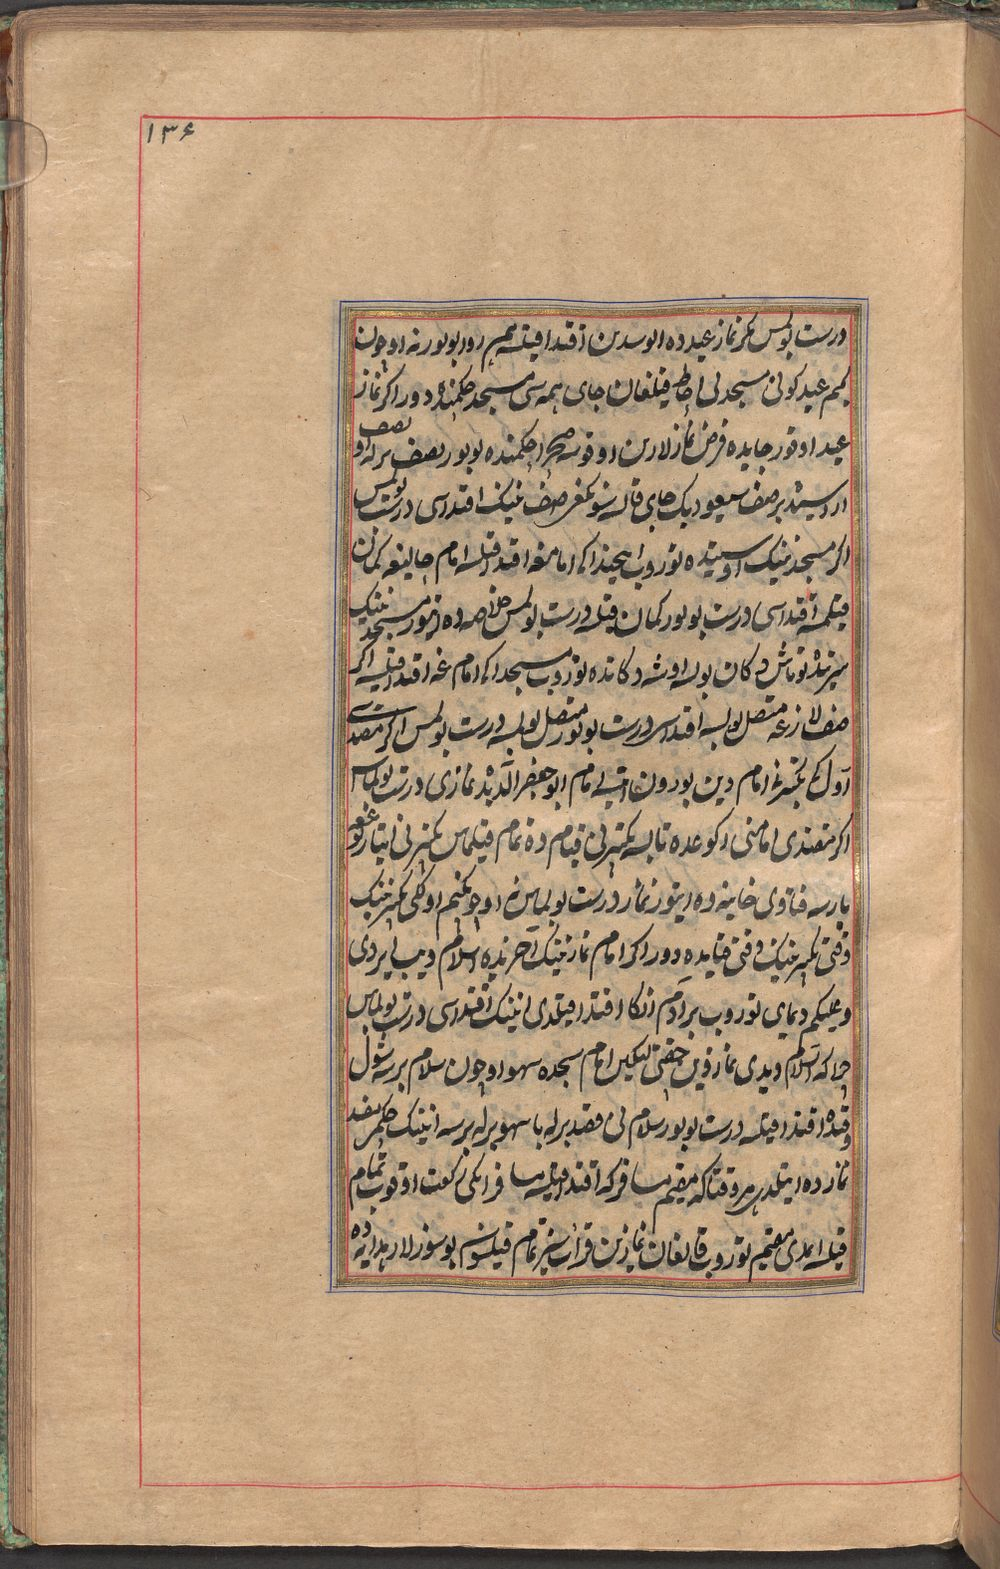 ۱۳۶
درست بولمس مکر نماز عیدده الوسدین اقتدا قیلسه هم روا بولور نه اوچون
کیم عید کونی مسجدنی احاطه قیلغان جای همه سی مسجد حکمنده دور اکر نماز
عید اوقور جایده فرض نمازلارین اوقوسه صحرا حکمنده بولور نصف برله او
اراسیده بر صف سیغودیک جای قالسه سونکغی صف نینک اقتداسی درست بولمس
اکر مسجد نینک اوستیده توروب ایچیداکی امامغه اقتدا قیلسه امام حالیغه کمان
قیلمسه اقتداسی درست بولور کمان قیلسه درست بولمس خلاصه ده اکر مسجد نینک
توتاش دکان بولسه اوشه دکانده توروب مسجداکی امام غه اقتدا قیلسه اکر
صفلارغه متصل بولسه اقتداسی درست بولور متصل بولمسه درست بولمس اکر مقتدی
اول تکبیرنی امام دین بورون ایتسه امام ابو جعفر الدیده نمازی درست بولماس
اکر مقتدی امامنی رکوعده تابسه تکبیرنی قیام ده تمام قیلماس تکبیرنی ایتا رکوعغه
بارسه فتاوی خانیه ده ایتور نماز درست بولماس نه اوچونکیم اولکی تکبیر نینک
وقتی تکبیر نینک وقتی قیامده دور اکر امام نماز نینک آخرنده السلام دیب ایردی
وعلیکم دیمای توروب بر آدم انکا اقتدا قیلدی انینک اقتداسی درست بولماس
چرا که السلام دیدی نمازدین چقتی لیکن امام سجده سهو اوچون سلام برسه شول
وقتده اقتدا قیلسه درست بولور سلام نی قصد برله یا سهو برله برسه انینک حکمی
نمازده ایتلدی هر وقتاکه مقیم مسافرکه اقتدا قیلسه مسافر ایکی رکعت اوقوب تمام
قیلسه ایمدی مقیم توروب قالغان نمازین قرات سیز تمام قیلسون بو سوزلار هدایه ده